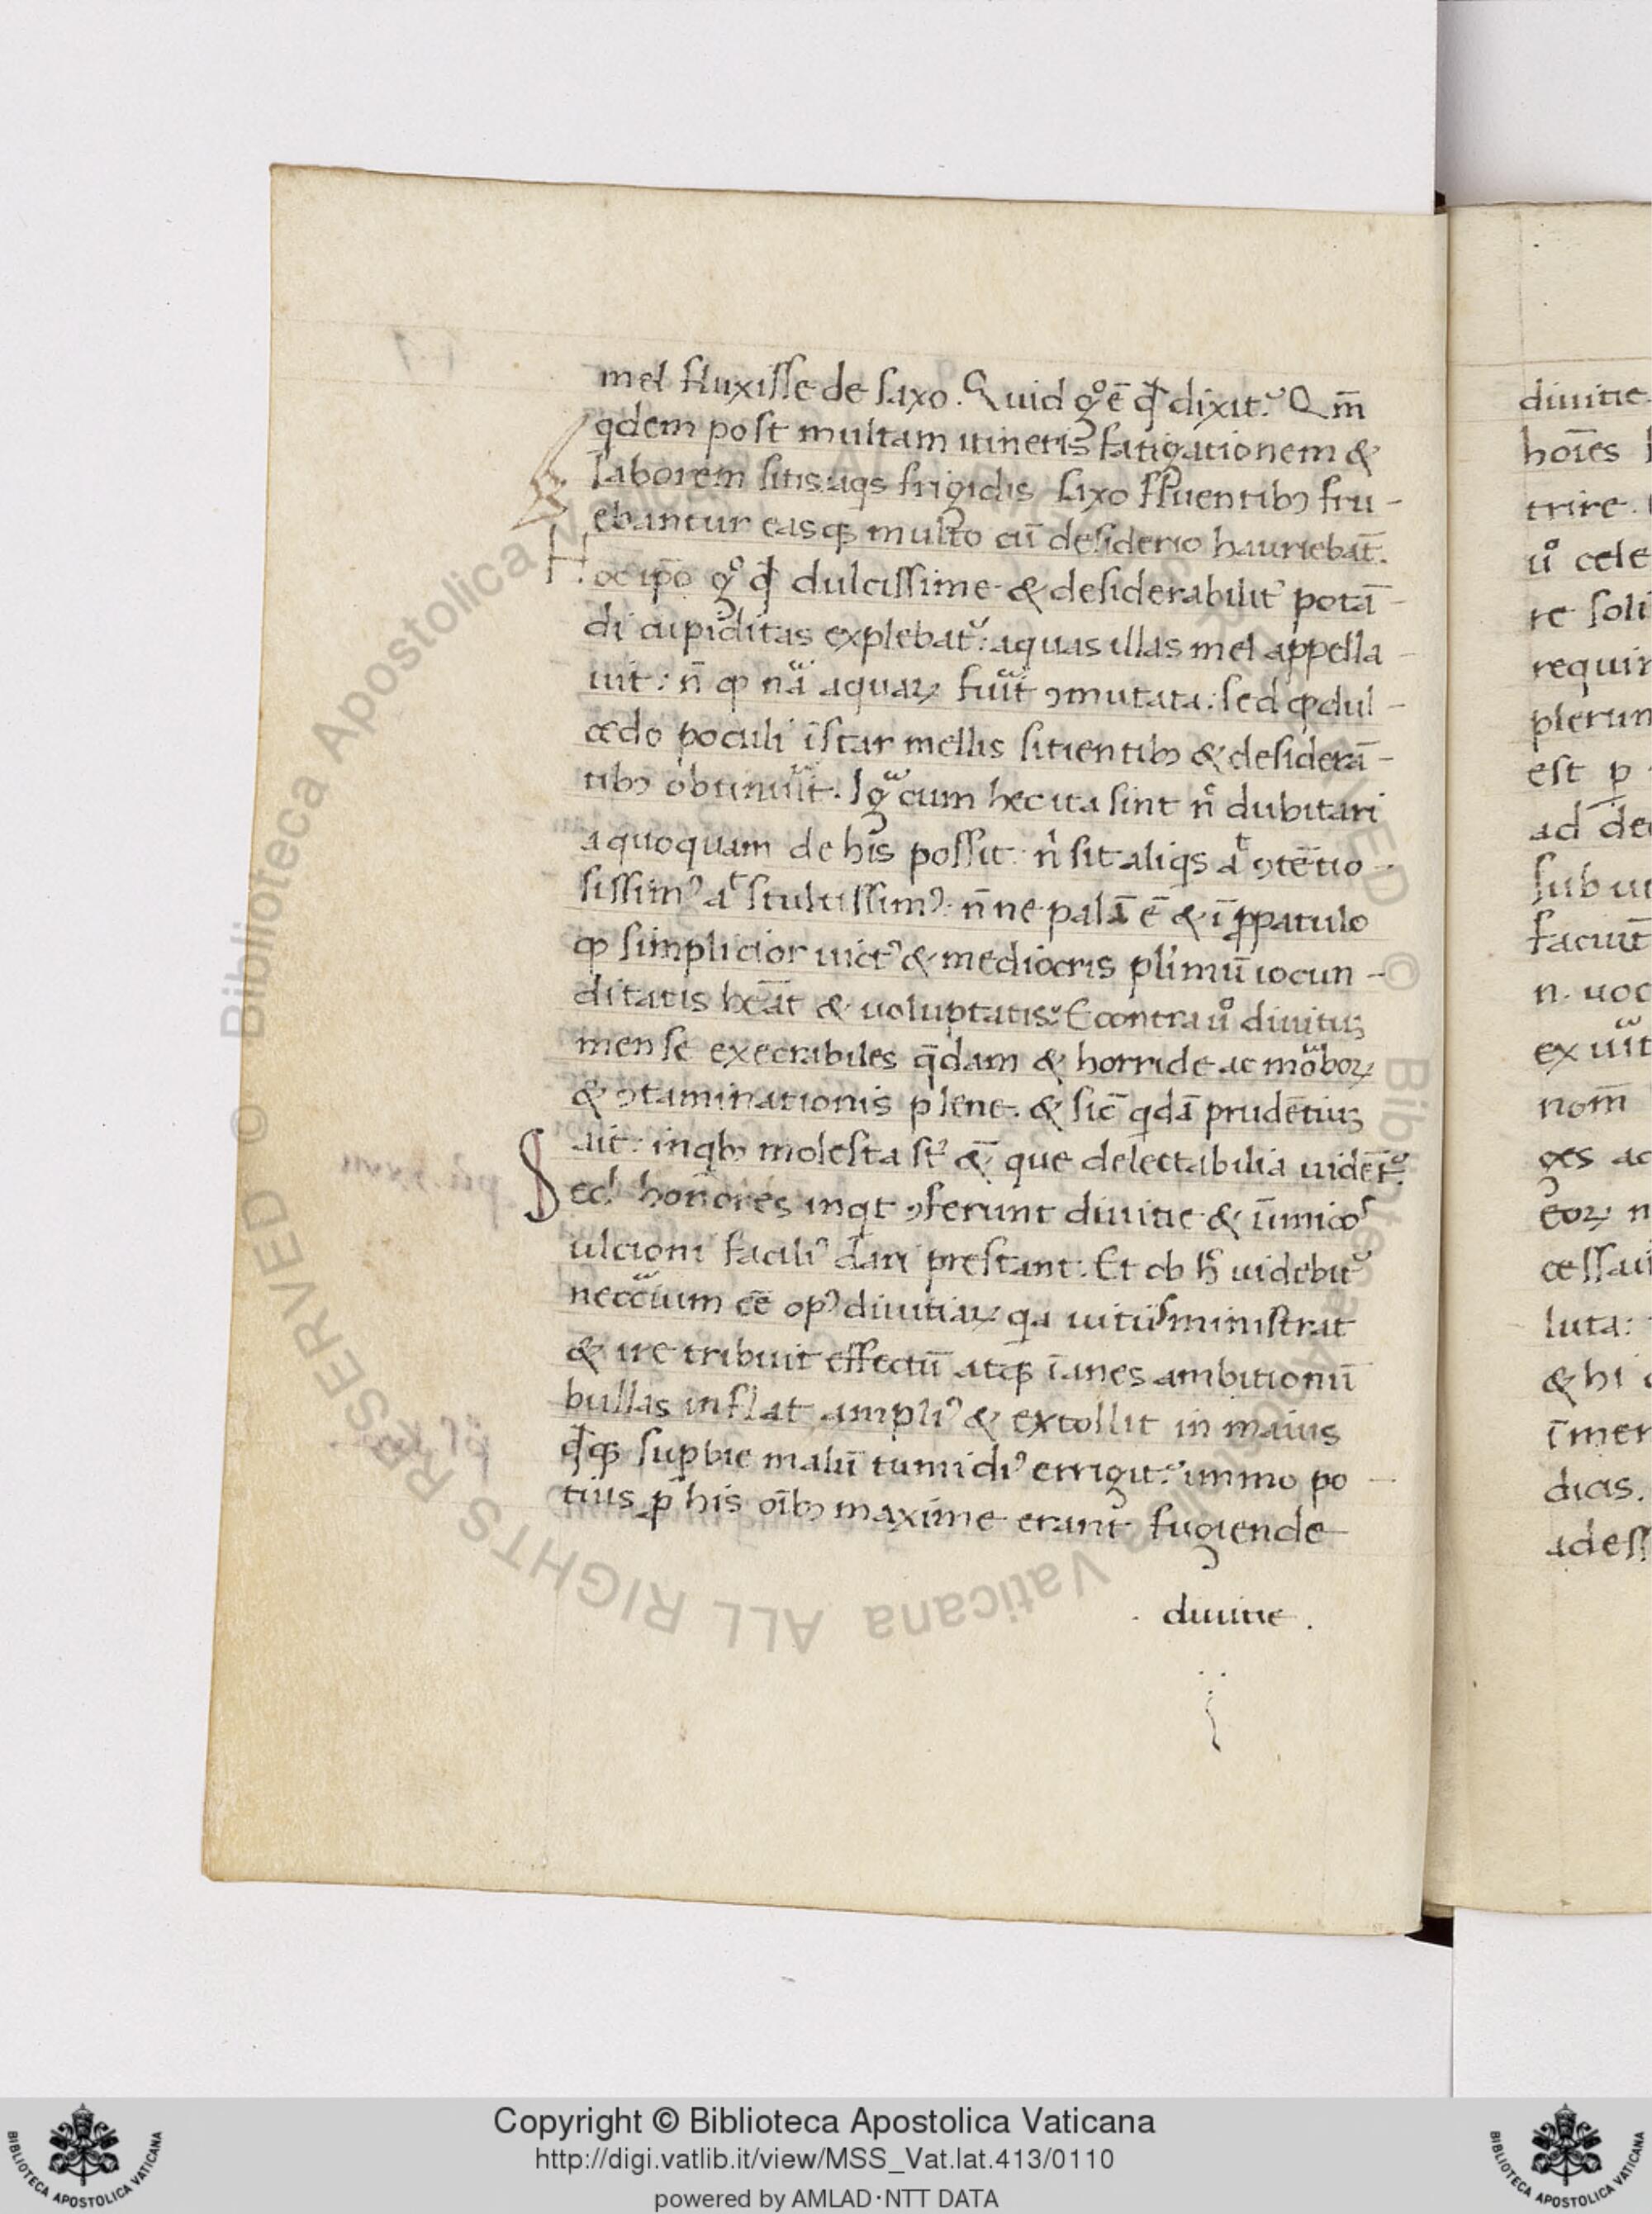 mel fluxisse de saxo. Quid g̊ ē qđ dixit? Qm̄
qdem post multam itineris fatigationem &
laborem sitis: aqs frigidis saxo fluentibꝫ fru-
ebantur easqꝫ multo cū desiderio hauriebāt.
Hoc ip̄o g̊ qđ dulcissime & desiderabilit᾽ potā-
di cupiditas explebat᾽: aquas illas mel appella-
uit: n̄ ꝙ nā aquaꝝ fu͛it ꝯmutata: sed ꝙ dul-
cedo poculi īstar mellis sitientibꝫ & desiderā-
tibꝫ obtinu͛it. Ig͛ cum hec ita sint n̄ dubitari
a quoquam de his possit: n̄ sit aliqs aᵗ ꝯtētio-
sissimꝰ aᵗ stultissimꝰ: n̄ne palā ē & ī ꝓpatulo
ꝙ simplicior uictꝰ & mediocris pl᾽imū iocun-
ditatis hēat & uoluptatis? Econtra ů diuitiꝫ
mense execrabiles q̄dam & horride ac mo͛boꝝ
& ꝯtaminationis plene. & sic̄ qdā prudētiuꝫ
ait: inqbꝫ molesta st᾽ & que delectabilia uidēt᾽.
Sed honores inqt ꝯferunt diuitie & inimicoꝭ
ulcioni faciliꝰ dari prestant. Et ob h̊ uidebit᾽
necc͛ium eē opꝰ diuitiaꝝ qa uitiis ministrat
& ire tribuit effectū atqꝫ īanes ambitionū
bullas inflat ampliꝰ & extollit in maius
qđqꝫ suꝑbie malū tumidiꝰ errigit? immo po-
tius ꝓ his oībꝫ maxime erant fugiende
diuitie.
diuitie.
hoīes
trire.
ů cele
re soli
requir
plerun
est ꝑ
ad
sub
faciūt
n. uoc
ex
nom̄
ges ac
eoꝝ n
cessau
luta:
& hi
īmen
dicis.
adess
Biblioteca Apostolica Vaticana ALL RIGHTS RESERVED ©
Copyright © Biblioteca Apostolica Vaticana
http://digi.vatlib.it/view/MSS_Vat.lat.413/0110
powered by AMLAD·NTT DATA
BIBLIOTECA APOSTOLICA VATICANA
BIBLIOTECA APOSTOLICA VATICANA